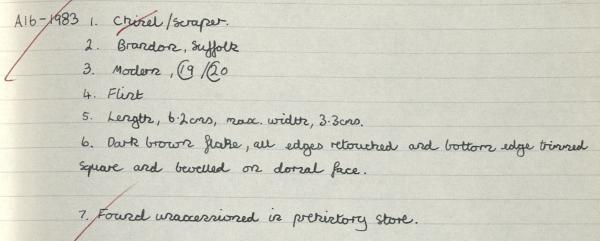 A16-1983 1. Chisel/scraper.
2. Brandon, Suffolk
3. Modern, C19/C20
4. Flint
5. Length, 6.2cms, max. width, 3.3cms.
6. Dark brown flake, all edges retouched and bottom edge trimmed
square and bevelled on dorsal face.
7. Found unaccessioned in prehistory store.